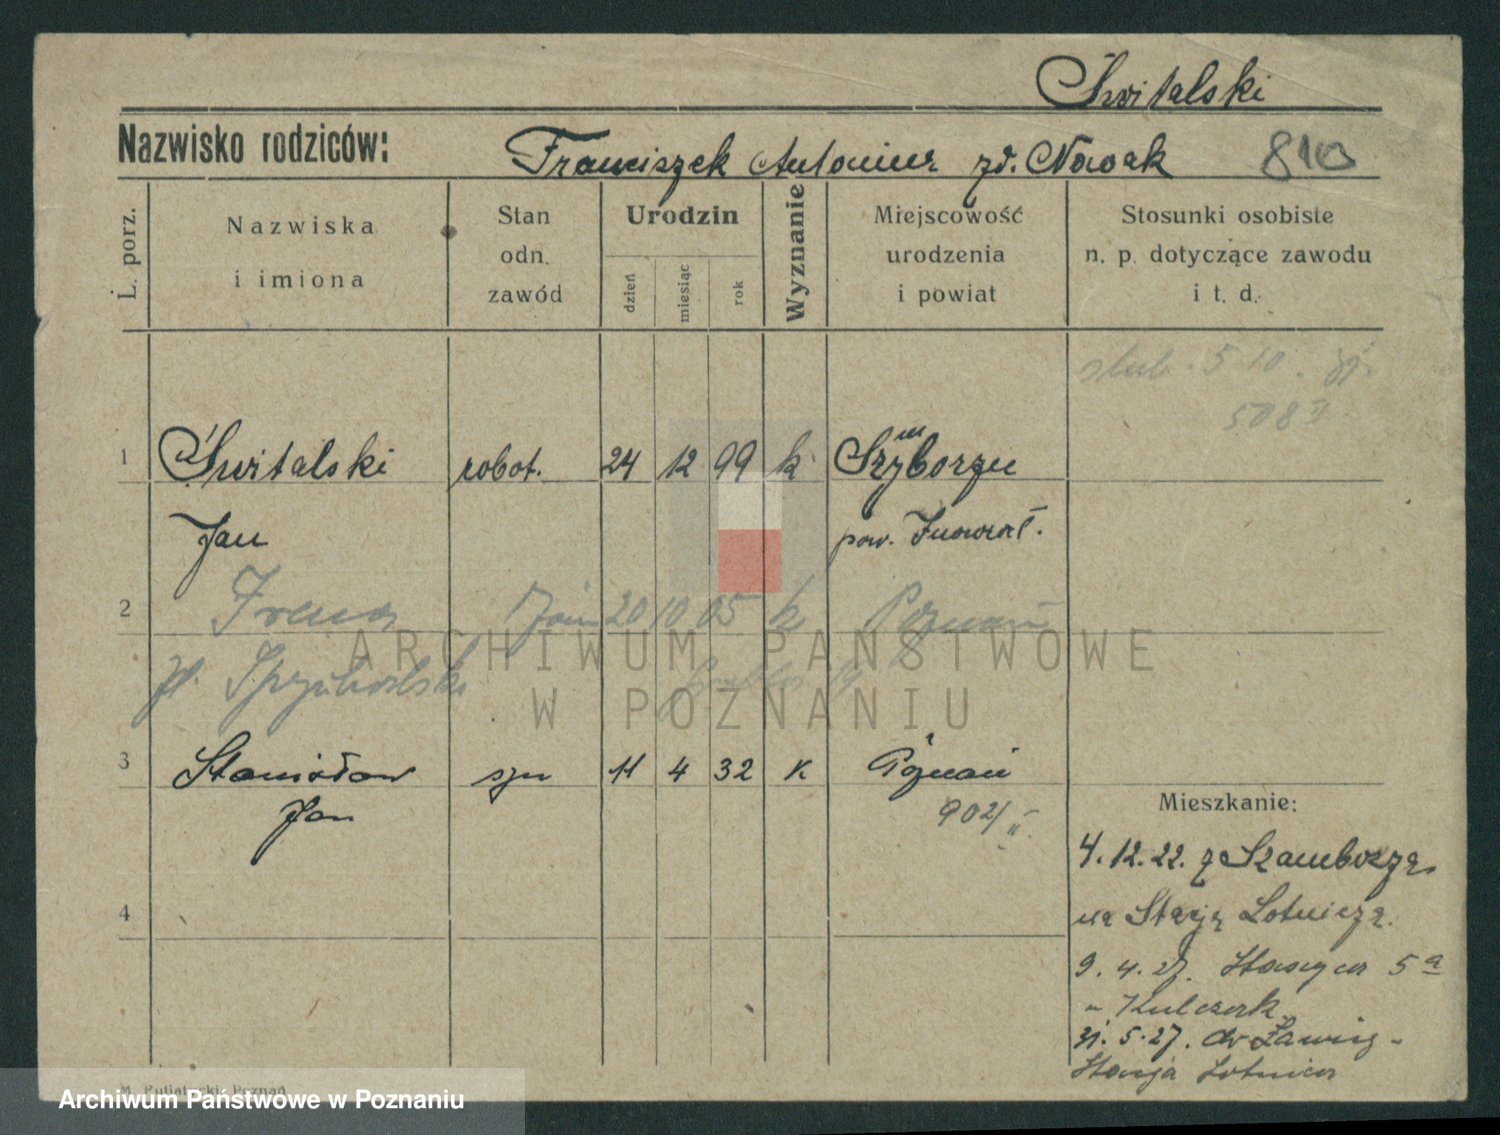 Świtalski
Nazwisko rodziców: Franciszek Antonina zd. Nowak 810
L. porz. Nazwiska i imiona Stan odn. zawód Urodzin dzień miesiąc rok Wyznanie Miejscowość urodzenia i powiat Stosunki osobiste n. p. dotyczące zawodu i t. d.
ślub. 5 10. 31.
508
1 Świtalski robot. 24 12 99 k Szymborzu
Jan pow. Inowrocł.
2 Irena 20 10 05 k Poznań
Przybylski
3 Stanisław syn 11 4 32 k Poznań
Jan 902/II.
Mieszkanie:
4. 12. 22. z Szamborza
na Stację Lotniczą.
4
9. 4. 27. 5a
u Kulczak
31. 5. 27. do Ławicy -
Stacja Lotnicza
M. Putiatycki, Poznań
ARCHIWUM PAŃSTWOWE
W POZNANIU
Archiwum Państwowe w Poznaniu